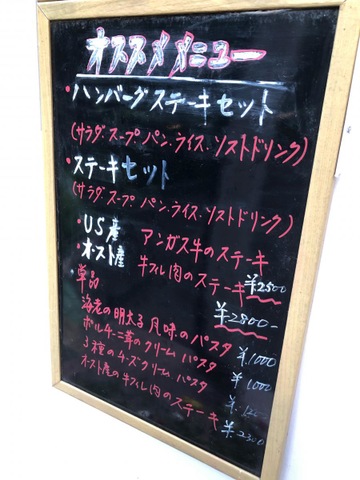 オススメメニュー
・ハンバーグステーキセット
(サラダ.スープ パン.ライス.ソストドリンク)
・ステーキセット
(サラダ.スープ パン.ライス.ソストドリンク)
・US産 アンガス牛のステーキ ¥2500
・オースト産 牛フィレ肉のステーキ ¥2800-
・単品
海老の明太子風味のパスタ ¥1000
ポルチーニ茸のクリームパスタ ¥1000
3種のチーズクリームパスタ
オースト産の牛フィレ肉のステーキ ¥2300